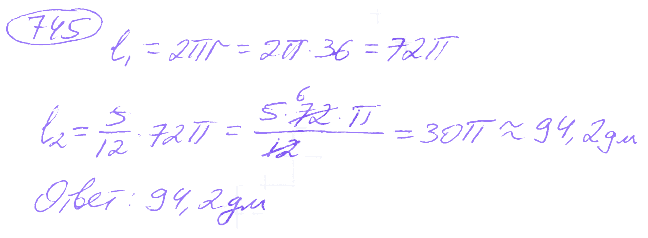 745
l₁ = 2πr = 2π · 36 = 72π
l₂ = 5/12 · 72π = 5 · 72 · π / 12 = 30π ≈ 94,2 дм
6
Ответ: 94,2 дм